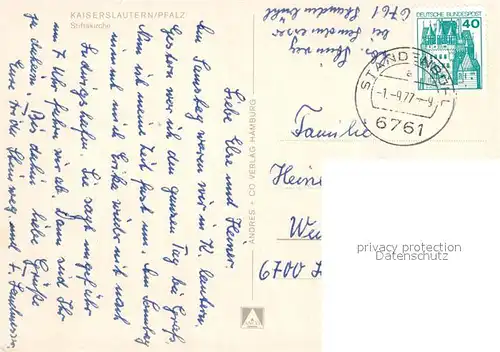 KAISERSLAUTERN/PFALZ
Stiftskirche
Liebe Else und Heiner
Am Samstag waren wir in K. lautern.
Gestern war ich den ganzen Tag bei
Nun ist meine Zeit fast um. Am Sonntag
nimmt mich Erika wieder mit nach
Ludwigshafen. Sie sagt ungefähr
um 7 Uhr fahren wir ab. Dann seid Ihr
ja daheim. Bis dahin liebe Grüße
Eure
ANDRES + CO VERLAG HAMBURG
6761
DEUTSCHE BUNDESPOST
40
STANDENBÜHL
-1.-9.77--9
6761
Familie
Hein
We
6700 L
privacy protection
Datenschutz